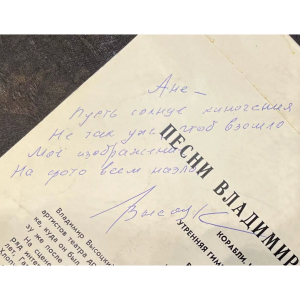 Ане –
Пусть солнце
Не так уж чтоб взошло
Моё изображение
На фото всем назло
ПЕСНИ ВЛАДИМИР
КОРАБЛИ
УТРЕННЯЯ ГИМ
Владимир Высоцки
артистов театра др
ке, куда он был
зу же после
На сцене
ряд
лет,